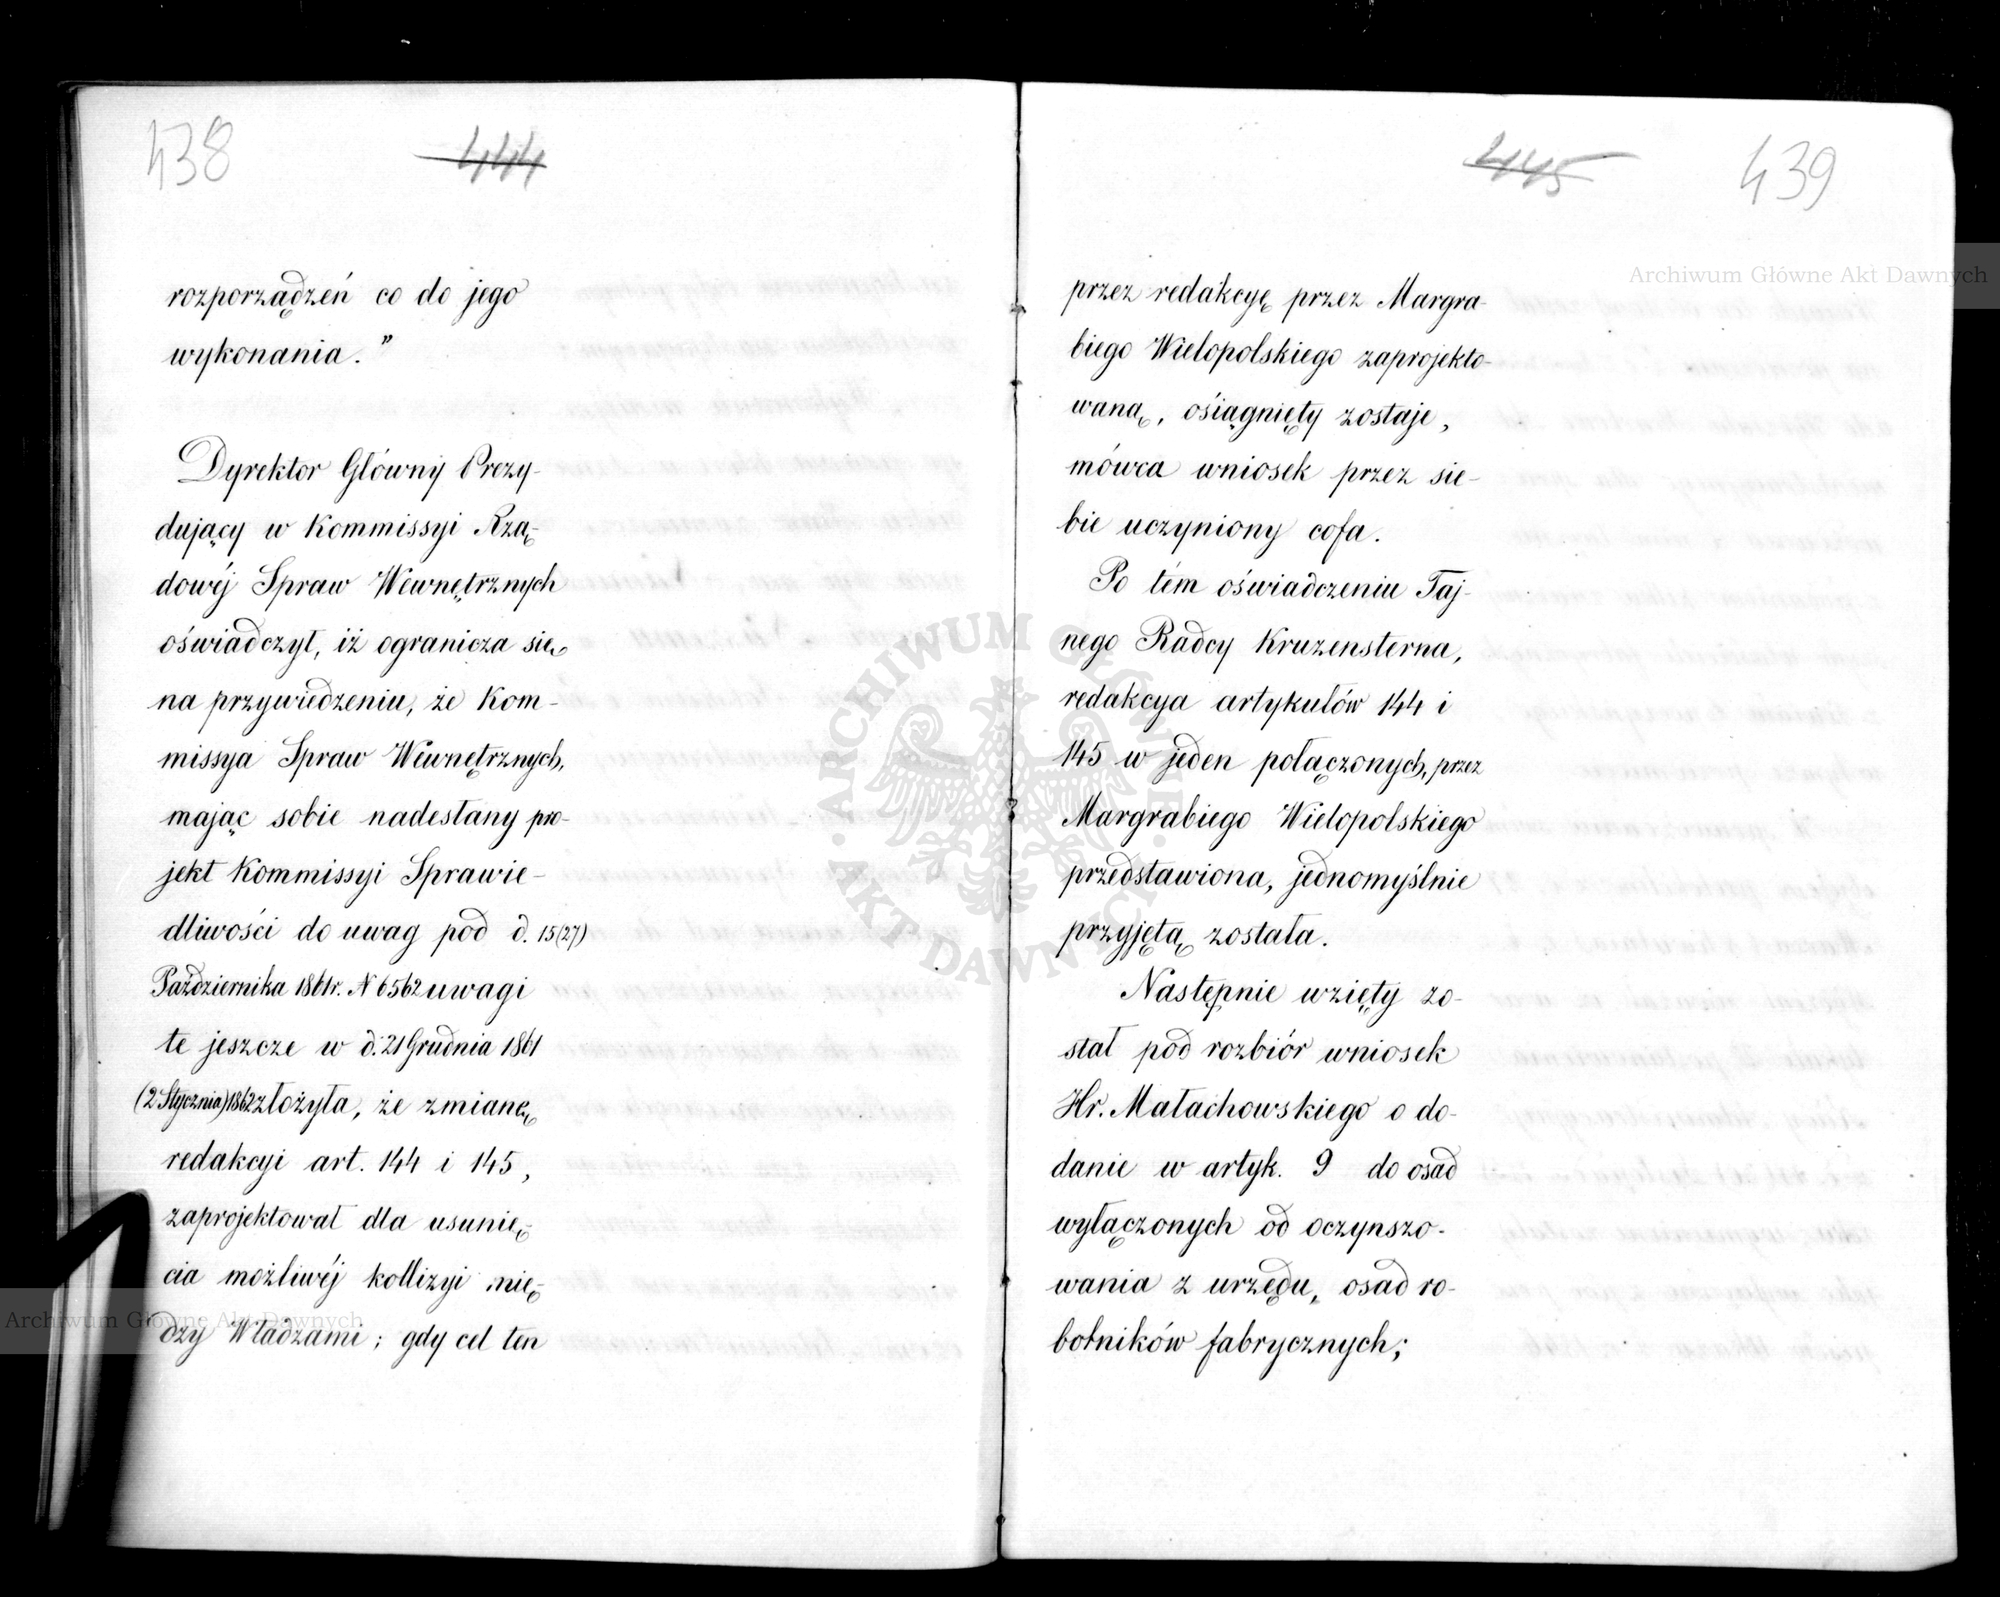 438
444
rozporządzeń co do jego
wykonania."
Dyrektor Główny Prezy-
dujący w Kommissyi Rzą-
dowéj Spraw Wewnętrznych
oświadczył, iż ogranicza się
na przywiedzeniu, że Kom-
missya Spraw Wewnętrznych,
mając sobie nadesłany pro-
jekt Kommissyi Sprawie-
dliwości do uwag pod d. 15(27)
Października 1861r. N 6562 uwagi
te jeszcze w d. 21 Grudnia 1861
(2 Stycznia) 1862 złożyła, że zmianę
redakcyi art. 144 i 145,
zaprojektował dla usunię-
cia możliwéj kollizyi mię-
dzy Władzami; gdy cel ten
445
439
przez redakcyę przez Margra-
biego Wielopolskiego zaprojekto-
waną, osiągnięty zostaje,
mówca wniosek przez sie-
bie uczyniony cofa.
Po tém oświadczeniu Taj-
nego Radcy Kruzensterna,
redakcya artykułów 144 i
145 w jeden połączonych, przez
Margrabiego Wielopolskiego
przedstawiona, jednomyślnie
przyjętą została.
Następnie wzięty zo-
stał pod rozbiór wniosek
Hr. Małachowskiego o do-
danie w artyk. 9 do osad
wyłączonych od oczynszo-
wania z urzędu, osad ro-
botników fabrycznych;
Archiwum Główne Akt Dawnych
Archiwum Główne Akt Dawnych
ARCHIWUM GŁÓWNE AKT DAWNYCH